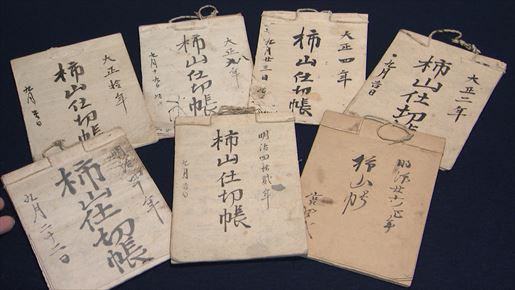 大正拾年
柿山仕切帳
九月吉日
大正九八年
柿山仕切帳
九月十六日
大正四年
柿山仕切帳
九月廿三日
大正二年
柿山仕切帳
九月吉日
明治四
年
柿山仕切帳
九月二十二日
明治四拾貳年
柿山仕切帳
九月吉日
明治廿
年
柿山帳